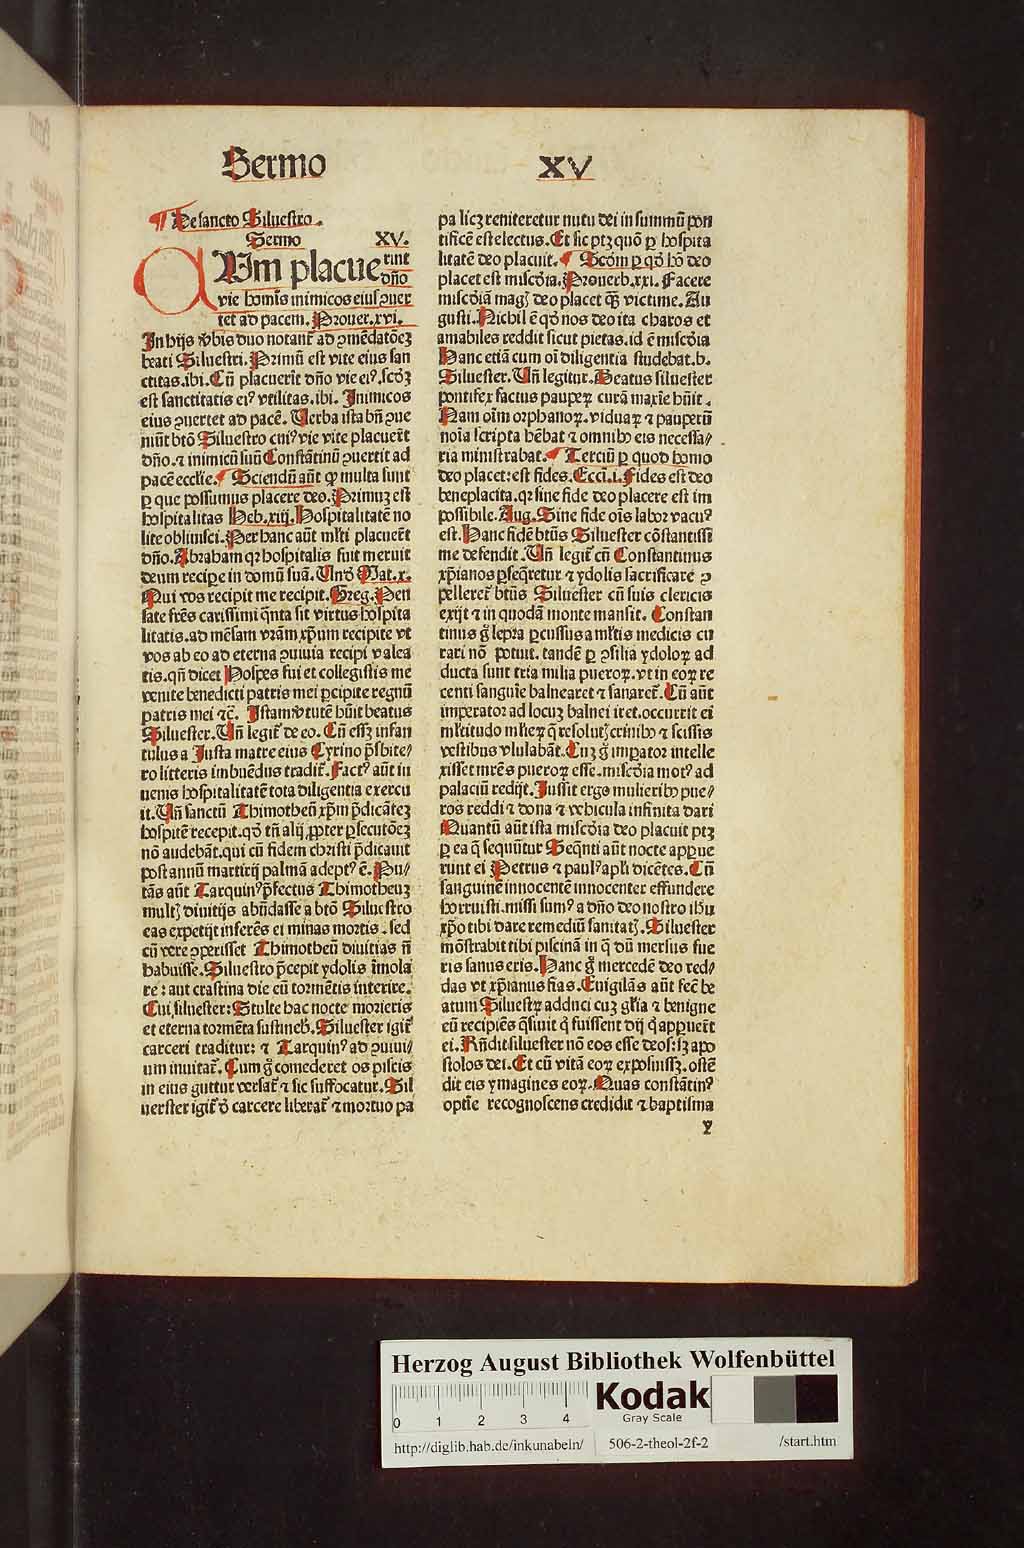 Sermo XV
¶ De sancto Siluestro.
Sermo XV.
CUm placuerint
dño
vie homīs inimicos eius ꝯuer
tet ad pacem. Prouer. xvi.
In hijs v̾bis duo notant̃ ad ꝯmēdatōeꝫ
beati Siluestri. Primū est vite eius san
ctitas. ibi. Cū placuerīt dño vie ei⁹. scdꝫ
est sanctitatis ei⁹ vtilitas. ibi. Inimicos
eius ꝯuertet ad pacē. Uerba ista bñ ꝯue
niūt btō Siluestro cui⁹ vie vite placuer̄t
dño. ⁊ inimicū suū Constātinū ꝯuertit ad
pacē eccl̄ie. ¶ Sciendū aūt ꝙ multa sunt
ꝑ que possumus placere deo. Primuꝫ est
hospitalitas Heb. xiij. Hospitalitatē no
lite obliuisci. Per hanc aūt ml̄ti placuer̄t
dño. Abraham qꝛ hospitalis fuit meruit
deum recipe in domū suā. Un̄ d̄o Mat. x.
Qui vos recipit me recipit. Greg. Pen
sate fr̄es carissimi q̄nta sit virtus hospita
litatis. ad mēsam vr̄am xp̄um recipite vt
vos ab eo ad eterna ꝯuiuia recipi valea
tis. qn̄ dicet Hospes fui et collegistis me
venite benedicti patris mei ꝑcipite regnū
patris mei ⁊c̄. Istam v̾tutē hūit beatus
Siluester. Un̄ legit̃ de eo. Cū essꝫ infan
tulus a Justa matre eius Cyrino p̄sbite⸗
ro litteris imbuēdus tradit̃. Fact⁹ aūt iu
uenis hospitalitatē tota diligentia exercu
it. Un̄ sanctū Thimotheū xp̄m p̄dicāteꝫ
hospitē recepit. qd̄ tn̄ alij ꝓpter ꝑsecutōeꝫ
nō audebāt. qui cū fidem christi p̄dicauit
post annū martirij palmā adept⁹ ē. Pu⸗
tās aūt Tarquin⁹ p̄fectus Thimotheuꝫ
multꝭ diuitijs abūdasse a btō Siluestro
eas expetijt inferēs ei minas mortis. sed
cū vere ꝯperisset Thimotheū diuitias ñ
habuisse. Siluestro p̄cepit ydolis īmola
re: aut crastina die eū tormētis interire.
Cui siluester: Stulte hac nocte morieris
et eterna tormēta sustineb̾. Siluester igit̃
carceri traditur: ⁊ Tarquin⁹ ad ꝯuiui⸗
um inuitat̃. Cum g̊ comederet os piscis
in eius guttur versat̃ ⁊ sic suffocatur. Sil
uerster igit̃ d̾ carcere liberat̃ ⁊ mortuo pa
pa licꝫ reniteretur nutu dei in summū pon
tificē est electus. Et sic ptꝫ quō ꝑ hospita
litatē deo placuit. ¶ Scdm ꝑ qd̄ hō deo
placet est misc̄dia. Prouerb. xxi. Facere
misc̄diā magꝭ deo placet q̄ꝫ victime. Au
gusti. Nichil ē qd̄ nos deo ita charos et
amabiles reddit sicut pietas. id ē misc̄dia
Hanc etiā cum oī diligentia studebat. b.
Siluester. Un̄ legitur. Beatus siluester
pontifex factus paupeꝝ curā maxīe hūit.
Nam oīm orphanoꝝ. viduaꝝ ⁊ pauperū
noīa scripta hēbat ⁊ omnibꝰ eis necessa⸗
ria ministrabat. ¶ Terciū ꝑ quod homo
deo placet: est fides. Ecci. i. Fides est deo
beneplacita. qꝛ sine fide deo placere est im
possibile. Aug. Sine fide oīs labor vacu⁹
est. Hanc fidē btūs Siluester cōstantissi
me defendit. Un̄ legit̃ cū Constantinus
xp̄ianos ꝑseq̄retur ⁊ ydolis sacrificare ꝯ
pelleret̃ btūs Siluester cū suis clericis
exijt ⁊ in quodā monte mansit. Constan
tinus g̊ lepra ꝑcussus a ml̄tis medicis cu
rari nō potuit. tandē ꝑ ꝯsilia ydoloꝝ ad
ducta sunt tria milia pueroꝝ. vt in eoꝝ re
centi sanguīe balnearet ⁊ sanaret̃. Cū aūt
imperator ad locuꝫ balnei iret. occurrit ei
ml̄titudo ml̄ieꝝ q̄ resolutꝭ crinibꝰ ⁊ scissis
vestibus vlulabāt. Cuꝫ g̊ imꝑator intelle
xisset mr̄es pueroꝝ esse. misc̄dia mot⁹ ad
palaciū redijt. Jussit ergo mulieribꝰ pue⸗
ros reddi ⁊ dona ⁊ vehicula infinita dari
Quantū aūt ista misc̄dia deo placuit ptꝫ
ꝑ ea q̄ sequūtur Seq̄nti aūt nocte apꝑue
runt ei Petrus ⁊ paul⁹ apl̄i dicētes. Cū
sanguinē innocentē innocenter effundere
horruisti. missi sum⁹ a dño deo nostro ih̄u
xp̄o tibi dare remediū sanitatꝭ. Siluester
mōstrabit tibi piscinā in q̄ dū mersus fue
ris sanus eris. Hanc g̊ mercedē deo red⸗
das vt xp̄ianus fias. Euigilās aūt fec̄ be
atum Siluestꝝ adduci cuꝫ gl̄ia ⁊ benigne
eū recipiēs q̄siuit q̇ fuissent dij q̇ apꝑuer̄t
ei. Rn̄dit siluester nō eos esse deos: sꝫ apo
stolos dei. Et cū vitā eoꝝ exposuissꝫ. ostē
dit eis ymagines eoꝝ. Quas constātin⁹
optīe recognoscens credidit ⁊ baptisma
y
Herzog August Bibliothek Wolfenbüttel
0 1 2 3 4
Kodak
Gray Scale
http://diglib.hab.de/inkunabeln/ 506-2-theol-2f-2 /start.htm